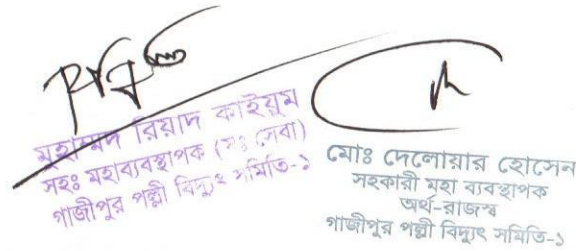 মুহাম্মদ রিয়াদ কাইয়ুম
সহঃ মহাব্যবস্থাপক (সঃ সেবা)
গাজীপুর পল্লী বিদ্যুৎ সমিতি-১
মোঃ দেলোয়ার হোসেন
সহকারী মহা ব্যবস্থাপক
অর্থ-রাজস্ব
গাজীপুর পল্লী বিদ্যুৎ সমিতি-১